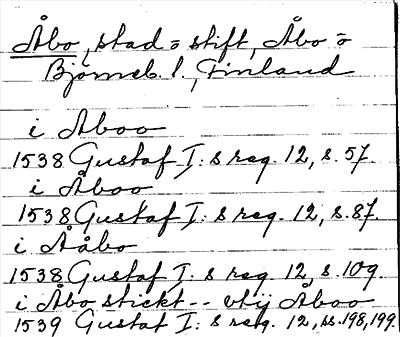 Åbo, stad o stift, Åbo o
Björneb. l., Finland
i Aboo
1538 Gustaf I:s reg. 12, s. 57.
i Åboo
1538 Gustaf I:s reg. 12, s. 87.
i Ååbo
1538 Gustaf I:s reg. 12, s. 109.
i Åbo stickt -- vtij Åboo
1539 Gustaf I:s reg. 12, ss. 198, 199.